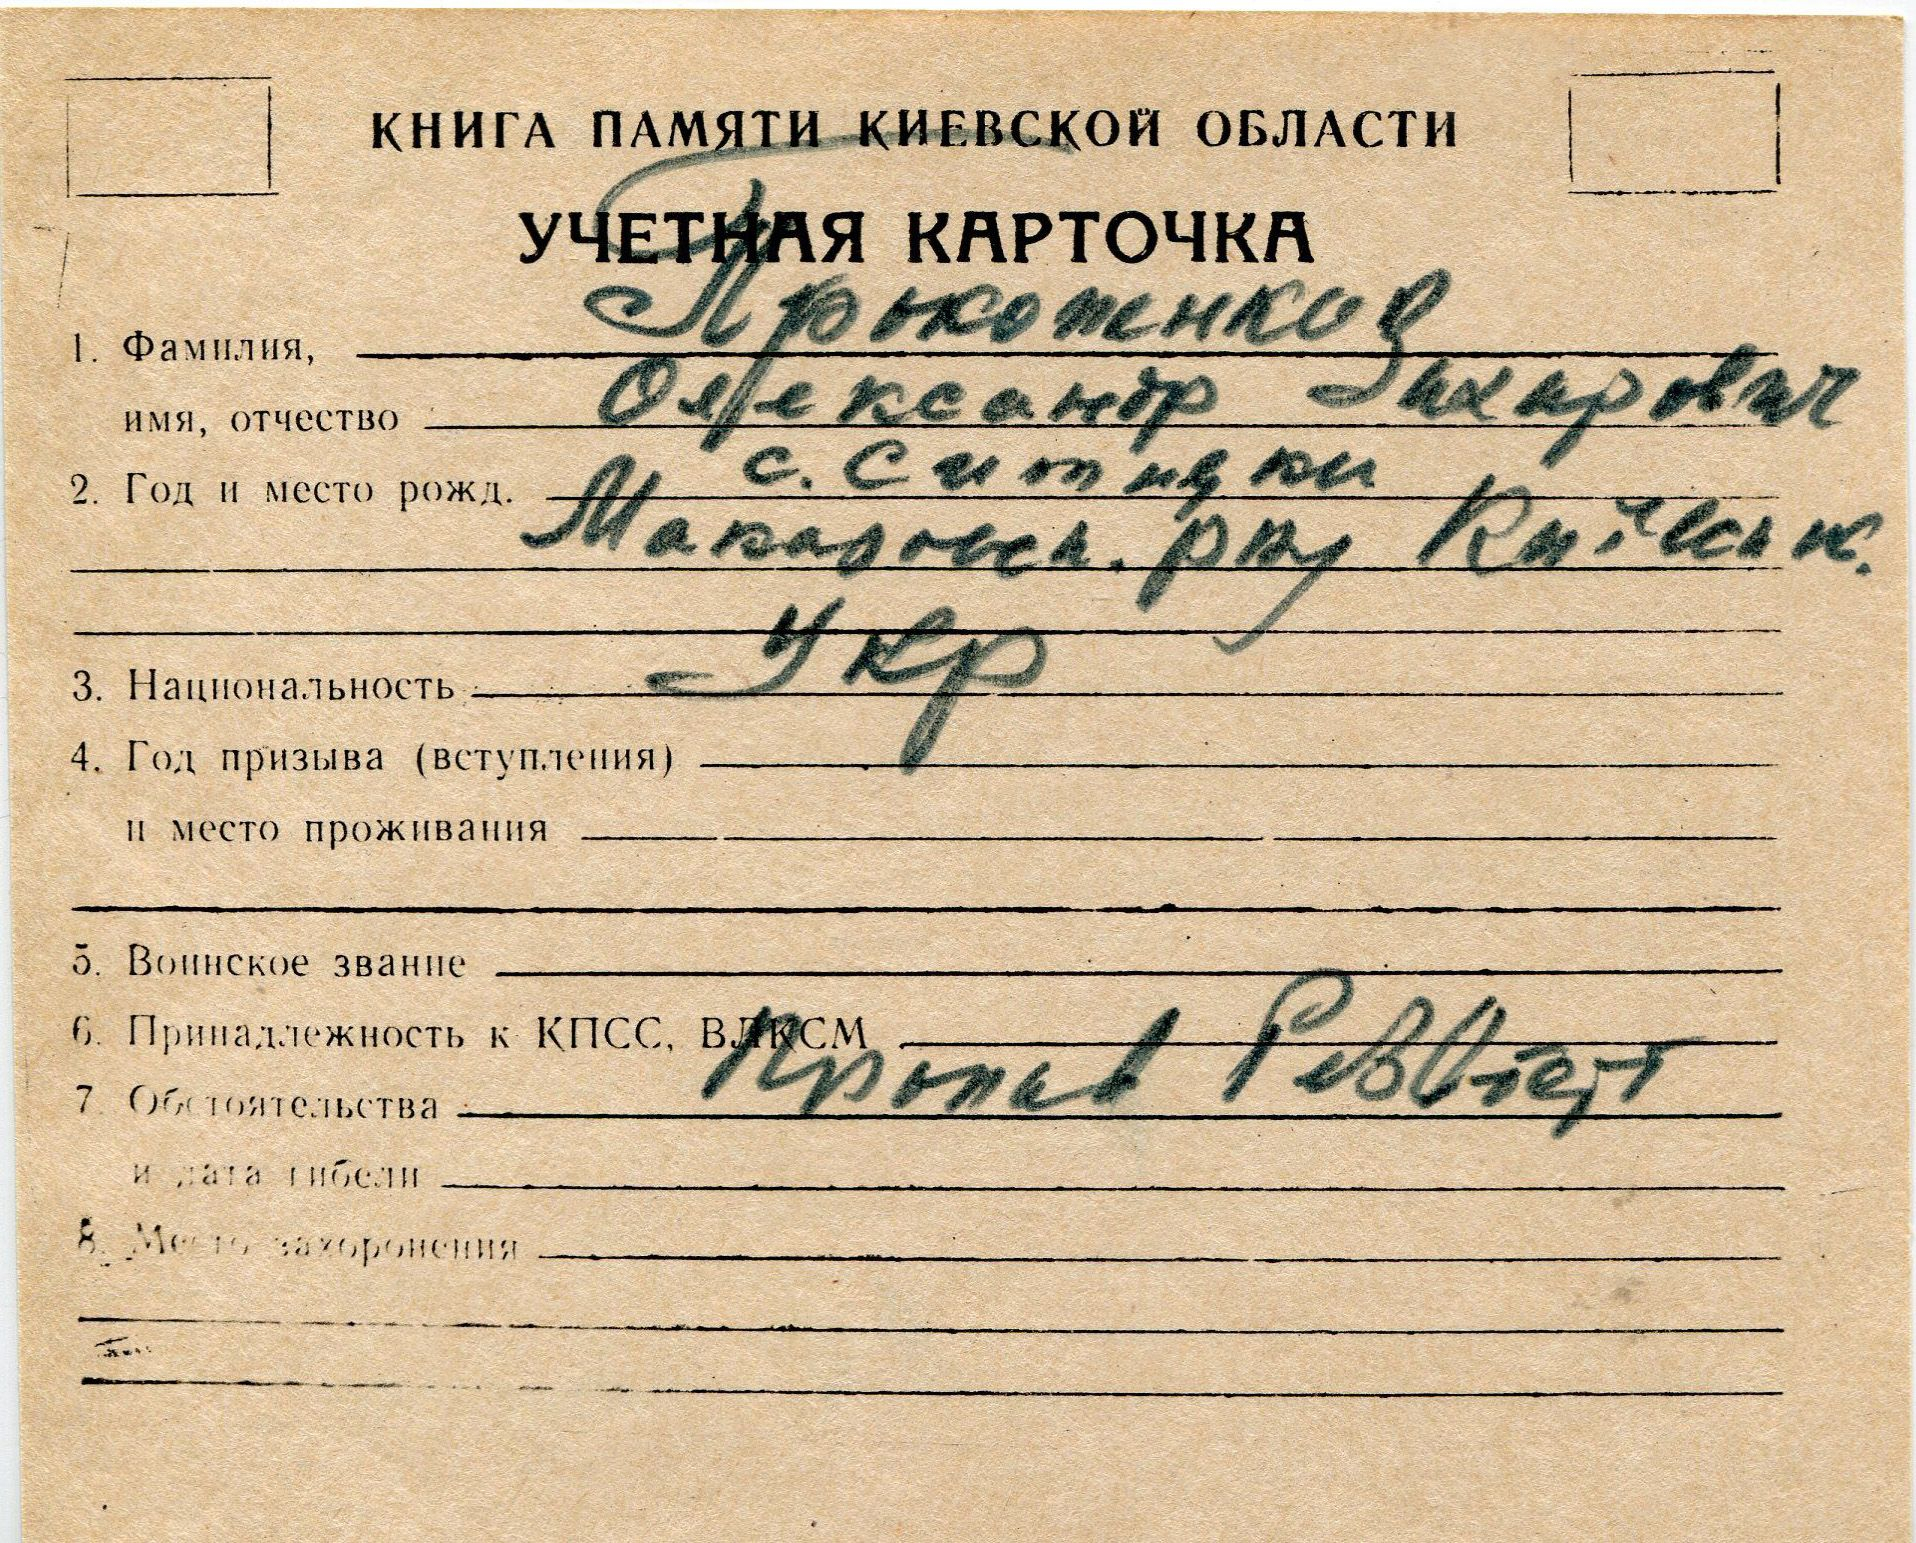 КНИГА ПАМЯТИ КИЕВСКОЙ ОБЛАСТИ
УЧЕТНАЯ КАРТОЧКА
1. Фамилия,
имя, отчество Олександр Захарович
2. Год и место рожд. с. Ситняки
Макаровськ. р-ну Київськ.
3. Национальность Укр
4. Год призыва (вступления)
и место проживания
5. Воинское звание
6. Принадлежность к КПСС, ВЛКСМ
7. Обстоятельства
и дата гибели
8. Место захоронения